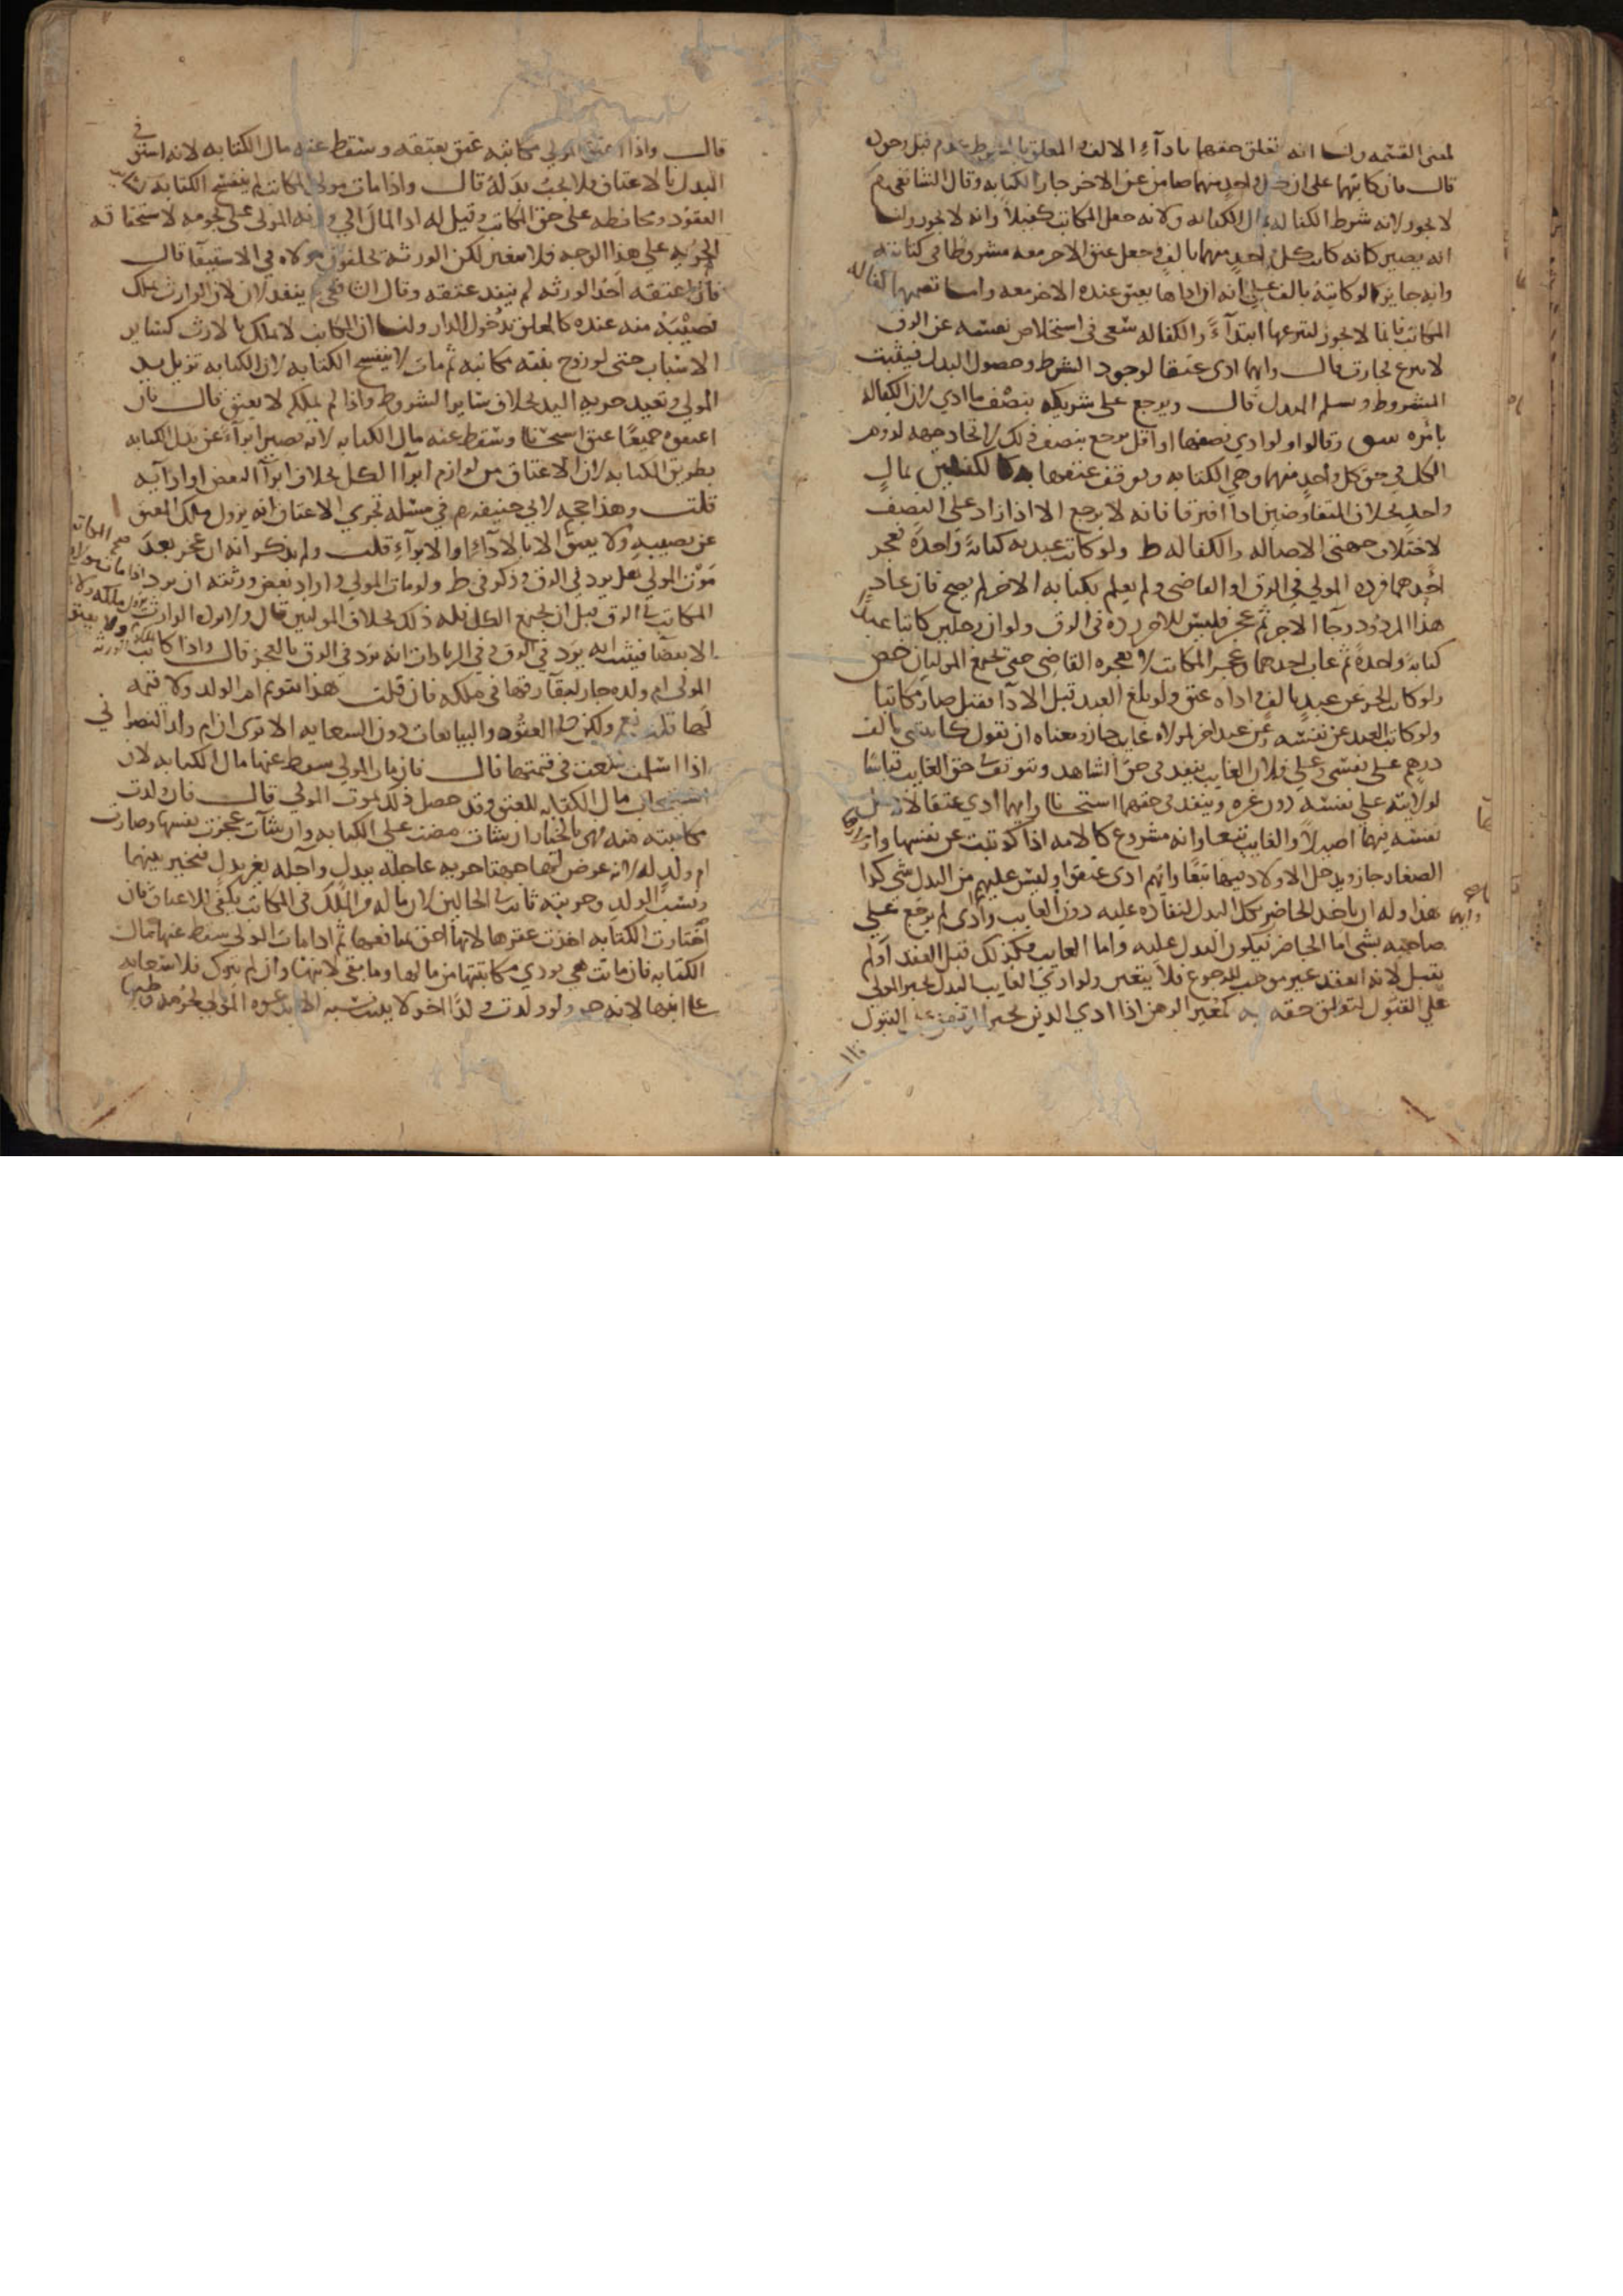 لمعنى القسمه ولنا انه تعلق حقهما باداء الالف والمعلق بالشرط عدم قبل وجوده
قال فان كاتبهما على ان كل واحد منهما ضامن عن الاخر جاز الكتابه وقال الشافعي رح
لا يجوز لانه شرط الكفاله ببدل الكتابه ولانه جعل المكاتب كفيلا وانه لا يجوز ولنا
انه يصير كانه كاتب كل واحد منهما بالف وجعل عتق الاخر معه مشروطا في كتابته
وانه جايز كما لو كاتبه بالف على انه ان اداها يعتق عنده الاخر معه وانما تصحيحها كفاله
المكاتب بمال لا يجوز لتبرعها ابتداء والكفاله سعى في استخلاص نفسه عن الرق
لا تبرع فجازت قال وايهما ادى عتقا لوجود الشرط وحصول البدل فيثبت
المشروط ويسلم المبدل قال ويرجع على شريكه بنصف ما ادى لان الكفاله
بامره سق وقالوا ولو ادى نصفها او اقل يرجع بنصف ذلك لاتحاد جهه لزوم
الكل في حق كل واحد منهما وهي الكتابه وتوقف عتقهما كالكفيلين بمال
واحد بخلاف المتفاوضين اذا افترقا فانه لا يرجع الا اذا زاد على النصف
لاختلاف جهتي الاصاله والكفاله ط ولو كاتب عبديه كتابة واحدة فعجز
احدهما فرده المولى في الرق او القاضي ولم يعلم بكتابه الاخر لم يصح فان عاد
هذا المردود وجا الاخر ثم عجز فليس للاخر رده في الرق ولو ان رجلين كاتبا عبدا
كتابة واحدة ثم غاب احدهما وعجز المكاتب لا يعجزه القاضي حتى يجتمع الموليان خص
ولو كاتب الحر عن عبد بالف فاداه عتق ولو بلغ العبد قبل الادا فقبل صار مكاتبا
ولو كاتب العبد عن نفسه وعن عبد اخر لمولاه غايب جاز ومعناه ان تقول كاتبتني بالف
درهم على نفسي وعلى فلان الغايب ينفذ في حق الشاهد ويتوقف حق الغايب قياسا
لولايته على نفسه دون غيره وينفذ في حقهما استحسانا وايهما ادى عتقا لانه جعل
نفسه فيها اصيلا والغايب تبعا وانه مشروع كالامه اذا كوتبت عن نفسها واولادها
الصغار جاز ويدخل الاولاد فيها تبعا وايهم ادى عتقوا وليس عليهم من البدل شي كذا
هذا وله ان ياخذ الحاضر بكل البدل لنفاذه عليه دون الغايب وايهما ادى لم يرجع على
صاحبه بشي اما الحاضر فيكون البدل عليه واما الغايب فكذلك قبل العقد او لم
يقبل لانه العقد غير موجب للرجوع فلا يتغير ولو ادى الغايب البدل يجبر المولى
على القبول لتعلق حقه به كمعير الرهن اذا ادى الدين يجبر المرتهن على القبول
قال واذا اعتق المولى مكاتبه عتق بعتقه وسقط عنه مال الكتابه لانه استق
البدل بالاعتاق فلا يجب بدله قال واذا مات مولى المكاتب لم ينفسخ الكتابه
العقود ومحافظه على حق المكاتب وقيل له اد المال الى ورثه المولى على نجومه لاستحقاقه
الحريه على هذا الوجه فلا يتغير لكن الورثه يخلفون مولاه في الاستيفا قال
فان اعتقه احد الورثه لم ينفذ عتقه وقال الشافعي رح ينفذ لان الوارث ملك
نصيبه منه عنده كالمعلق بدخول الدار ولنا ان المكاتب لا يملك بالارث كساير
الاسباب حتى لو زوج بنته مكاتبه ثم مات لا ينفسخ الكتابه لان الكتابه تزيل يد
المولى وتفيد حريه اليد بخلاف ساير الشروط واذا لم يملكه لا يعتق قال فان
اعتقوه جميعا عتق استحسانا وسقط عنه مال الكتابه لانه يصير ابراء عن بدل الكتابه
بطريق الكتابه لان الاعتاق من لوازم ابرا الكل بخلاف ابرا البعض او ادايه
قلت وهذا حجه لابي حنيفه رح في مسئله تجزي الاعتاق انه يزول ملك المعتق
عن نصيبه ولا يعتق الا بالاداء او الابراء قلت ولم يذكر انه ان عجز بعد
موت المولى هل يرد في الرق وذكر في ط ولو مات المولى واراد بعض ورثته ان يرد
المكاتب في الرق قبل ان يجتمع الكل فله ذلك بخلاف الموليين قال
الا بعضا فيثبت انه يرد في الرق وفي الزيادات انه يرد في الرق بالعجز قال واذا كاتب
المولى ام ولده جاز لبقآء رقها في ملكه فان قلت هذا يتقوم ام الولد ولا قيمه
لها قلت نعم ولكن في العقود والبياعات دون السعايه الا ترى ان ام ولد النصراني
اذا اسلمت سعت في قيمتها قال فان مات المولى سقط عنها مال الكتابه لان
استيجاب مال الكتابه للعتق وقد حصل ذلك بموت المولى قال فان ولدت
مكاتبته منه فهي بالخيار ان شات مضت على الكتابه وان شآت عجزت نفسها وصارت
ام ولد له لانه عرض لها جهتا حريه عاجله ببدل وآجله بغير بدل فتخير بينهما
ونسب الولد وحريته ثابت في الحالين لان ماله من الملك في المكاتب يكفي للاعتاق فان
اختارت الكتابه اخذت عقرها لانها احق بمنافعها ثم اذا مات المولى سقط عنها مال
الكتابه فان ماتت هي يودي مكاتبتها من مالها وما بقي لابنها وان لم يترك فلا سعايه
على ابنها لانه حر ولو ولدت ولدا اخر لا يثبت نسبه الا بدعوه المولى لحرمه وطيها